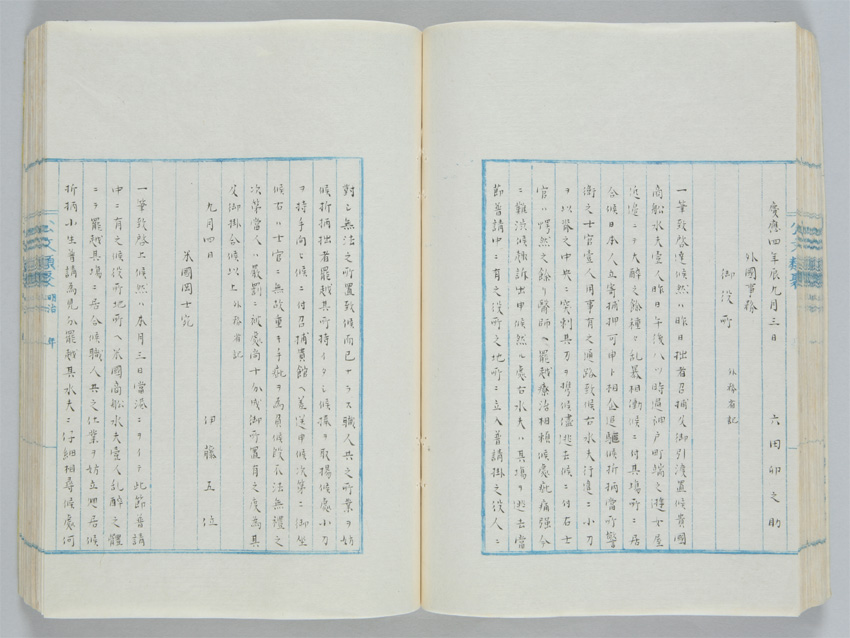 慶應四年辰九月三日
六田卯之助
外國事務
御役所
外務省記
一筆致啓達候然ハ昨日拙者召捕及御引渡置候貴國
商船水夫壹人昨日午後八ツ時過細戸町端之遊女屋
近邊ニテ大醉之餘種々乱暴相働候ニ付其場所ニ居
合候日本人立寄捕押可申ト相企追驅候折柄當所警
衛之士官壹人用事有之通路致候右水夫行違ニ小刀
ヲ以脊之中央ニ突刺其刀ヲ携候儘逃去候ニ付右士
官ハ愕然之餘リ醫師ヘ罷越療治相頼候處疵痛强今
ニ難渋候趣訴出申候然ル處右水夫ハ其場ヲ逃去當
節普請中ニ有之役所之地所ニ立入普請掛之役人ニ
對シ無法之所置致候而已ナラス職人共之所業ヲ妨
候折柄拙者罷越其所持イタシ候操ヲ取揚候處小刀
ヲ持手向シ候ニ付召捕貴館ヘ差送申候次第ニ御坐
候右ハ士官ニ無故重キ手疵ヲ為負候段不法無禮之
次第當人ハ嚴罰ニ被處尚十分成御所置有之度為其
及御掛合候以上 外務省記
九月四日
伊藤五位
米國岡士宛
一筆致啓上候然ハ本月三日當港ニヲーテ此節普請
中ニ有之候役所地所ヘ米國商船水夫壹人乱醉之體
ニテ罷越其場ニ居合候職人共之仕業ヲ妨立廻居候
折柄小生普請為見分罷越其水夫ニ仔細相尋候處何
公文類聚
明治
年
公文類聚